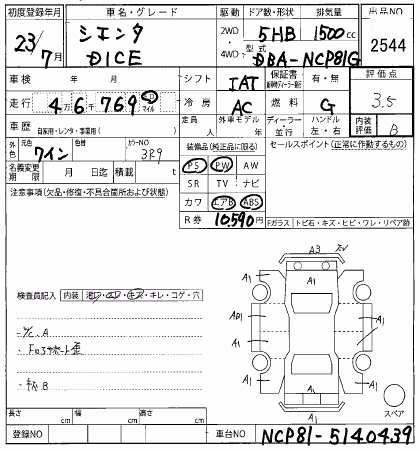 初度登録年月 車名・グレード 駆動 ドア数・形状 排気量 出品NO
23/7月 シエンタ DICE 2WD 4WD 5HB 1500cc 2544
型式 DBA-NCP81G
車検 年 月 シフト IAT 保証書 有・無 評価点
走行 4万6千769 km マイル 冷房 AC 燃料 G 3.5
車歴 自家用・レンタ・事業用( ) 定員 人 外車モデル 年 ディーラー・並行 ハンドル 左・右 内装評価 B
外色 ワイン 色替 カラーNO 3R9 装備品(純正品に限る) セールスポイント(正常に作動するもの)
名義変更期限 月 日迄 積載 t PS PW AW
注意事項(欠品・修復・不具合箇所および状態) SR TV ナビ
カワ エアB ABS
R券 10,590円 Fガラス トビ石・キズ・ヒビ・ワレ・リペア跡
A3
A1 A1
検査員記入 内装
A1 A1
AP1 A1
A. A
Fコアサポート歪
A1 A1
B
A1
スペア
長さ cm 幅 cm 高さ cm
登録NO 車台NO NCP81-5140439